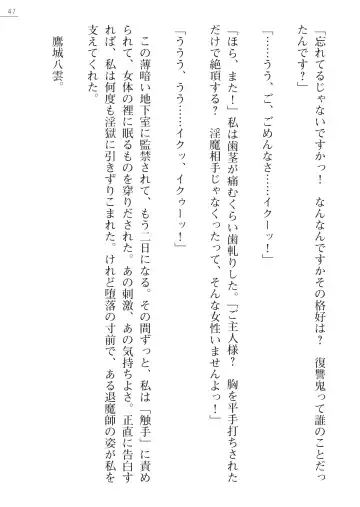 41
「忘れてるじゃないですかっ！　なんなんですかその格好は？　復讐鬼って誰のことだっ
たんです？」
「……うう、ご、ごめんなさ……イクーッ！」
「ほら、また！」私は歯茎が痛むくらい歯軋りした。「ご主人様？　胸を平手打ちされた
だけで絶頂する？　淫魔相手じゃなくったって、そんな女性いませんよっ！」
「ううう、うう……イクッ、イクゥーッ！」
　この薄暗い地下室に監禁されて、もう二日になる。その間ずっと、私は「触手」に責め
られて、女体の裡に眠るものを穿りだされた。あの刺激、あの気持ちよさ。正直に告白す
れば、私は何度も淫獄に引きずりこまれた。けれど堕落の寸前で、ある退魔師の姿が私を
支えてくれた。
　鷹城八雲。